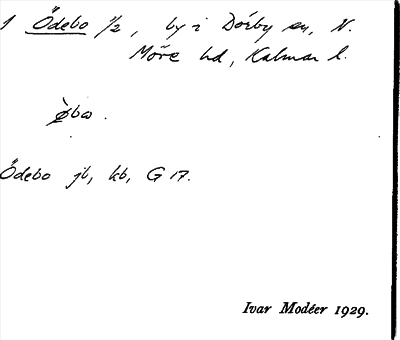 1 Ödebo 1/2, by i Dörby sn, N.
Möre hd, Kalmar l.
øbω.
Ödebo jb, kb, G 17.
Ivar Modéer 1929.